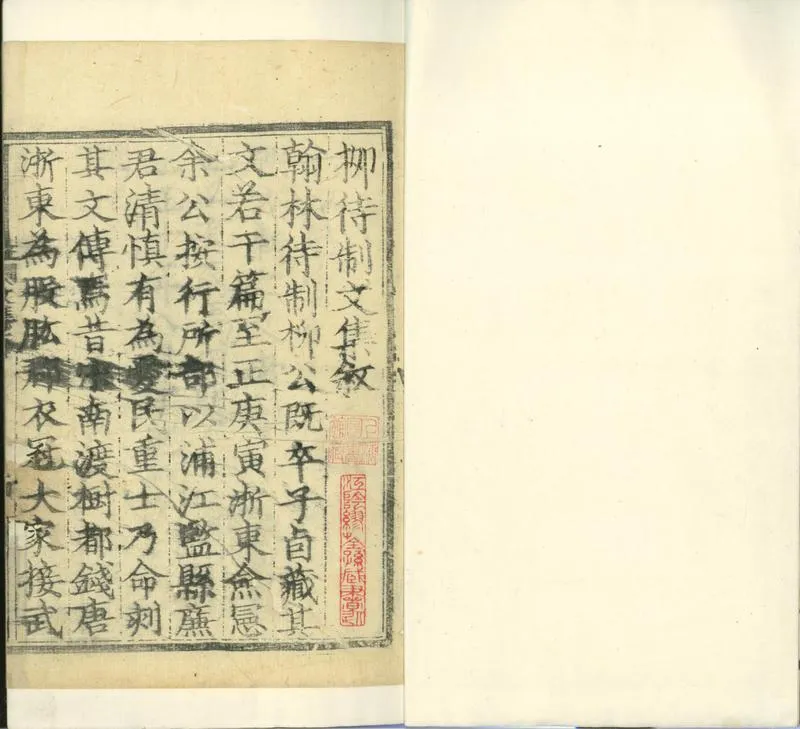 柳待制文集敘
翰林待制柳公既卒子卣藏其
文若干篇至正庚寅浙東僉憲
余公按行所部以浦江監縣廉
君清慎有為愛民重士乃命刻
其文傳焉昔宋南渡樹都錢唐
浙東為股肱郡衣冠大家接武
江陰繆荃孫藏書記